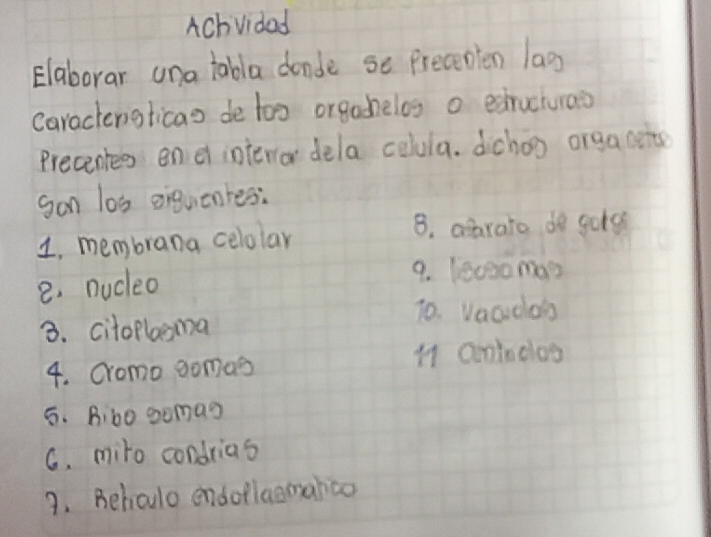 Actividad
Elaborar una tabla donde se Precenten las
caracteristicas de los organelos o estructuras
Precentes en el interior dela celula. dichos
son los siguientes:
1. membrana celular
2. nucleo
3. citoplasma
4. Cromo somas
5. Ribo somas
6. mito condrias
7. Reticulo endoplasmatico
8. aparato de golgi
9. lisosomas
10. Vacuolas
11 Centriolos